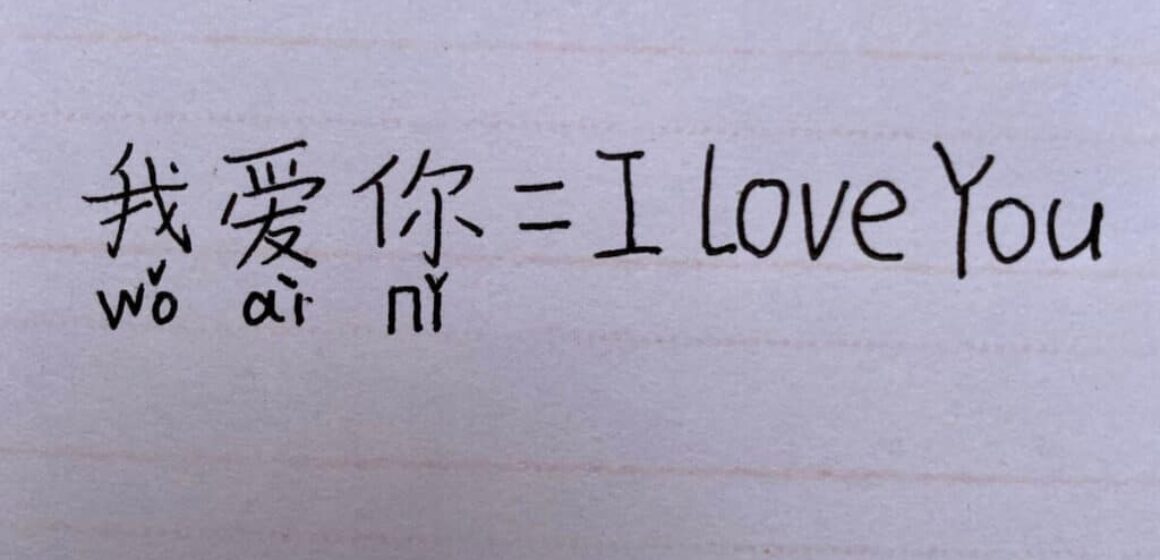 我爱你 = I Love You
wǒ ài nǐ